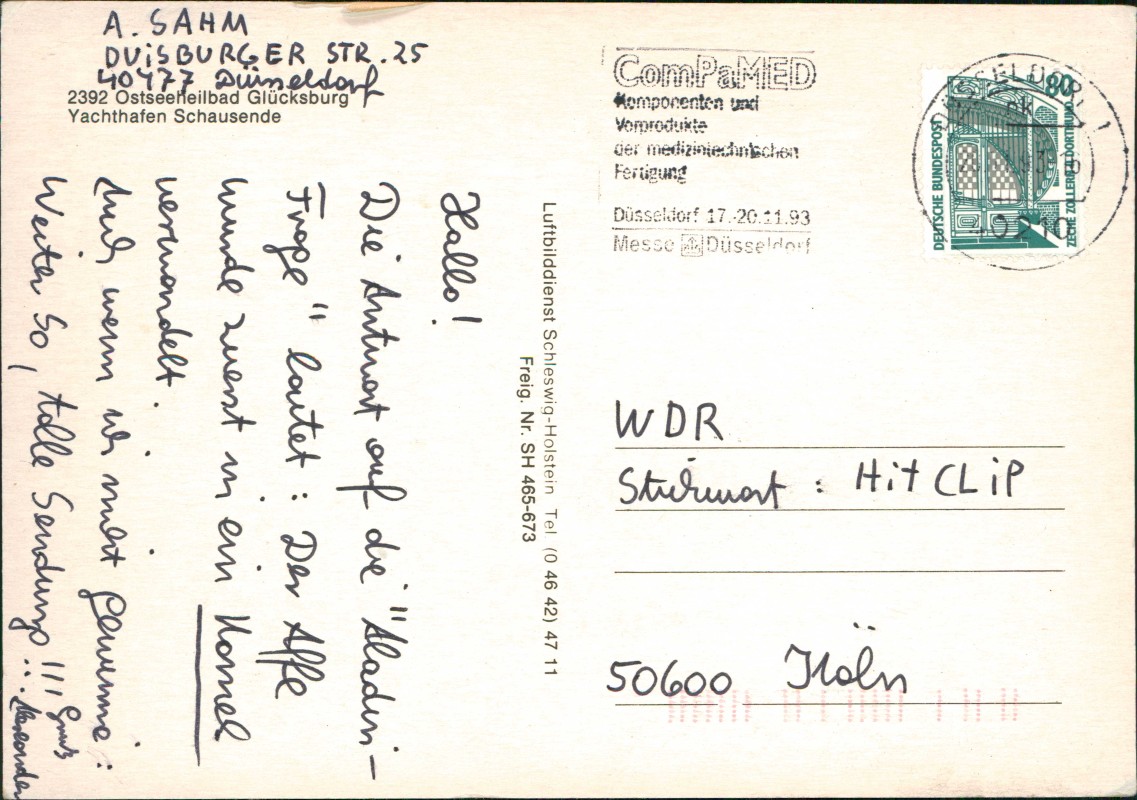 A. SAHM
DUiSBURGER STR. 25
40477 Düsseldorf
2392 Ostseeheilbad Glücksburg
Yachthafen Schausende
Hallo!
Die Antwort auf die "Aladin-
Frage" lautet: Der Affe
wurde zuerst in ein Kamel
verwandelt.
Auch wenn ich nicht gewinne:
Weiter so, tolle Sendung!!!
Gruß
Alexander
Luftbilddienst Schleswig-Holstein Tel (0 46 42) 47 11
Freig. Nr. SH 465-673
ComPaMED
Komponenten und
Vorprodukte
der medizintechnischen
Fertigung
Düsseldorf 17.-20.11.93
Messe Düsseldorf
DÜSSELDORF 1
40210
80
DEUTSCHE BUNDESPOST
ZECHE ZOLLERN II DORTMUND
WDR
Stichwort: HiT CLiP
50600 Köln